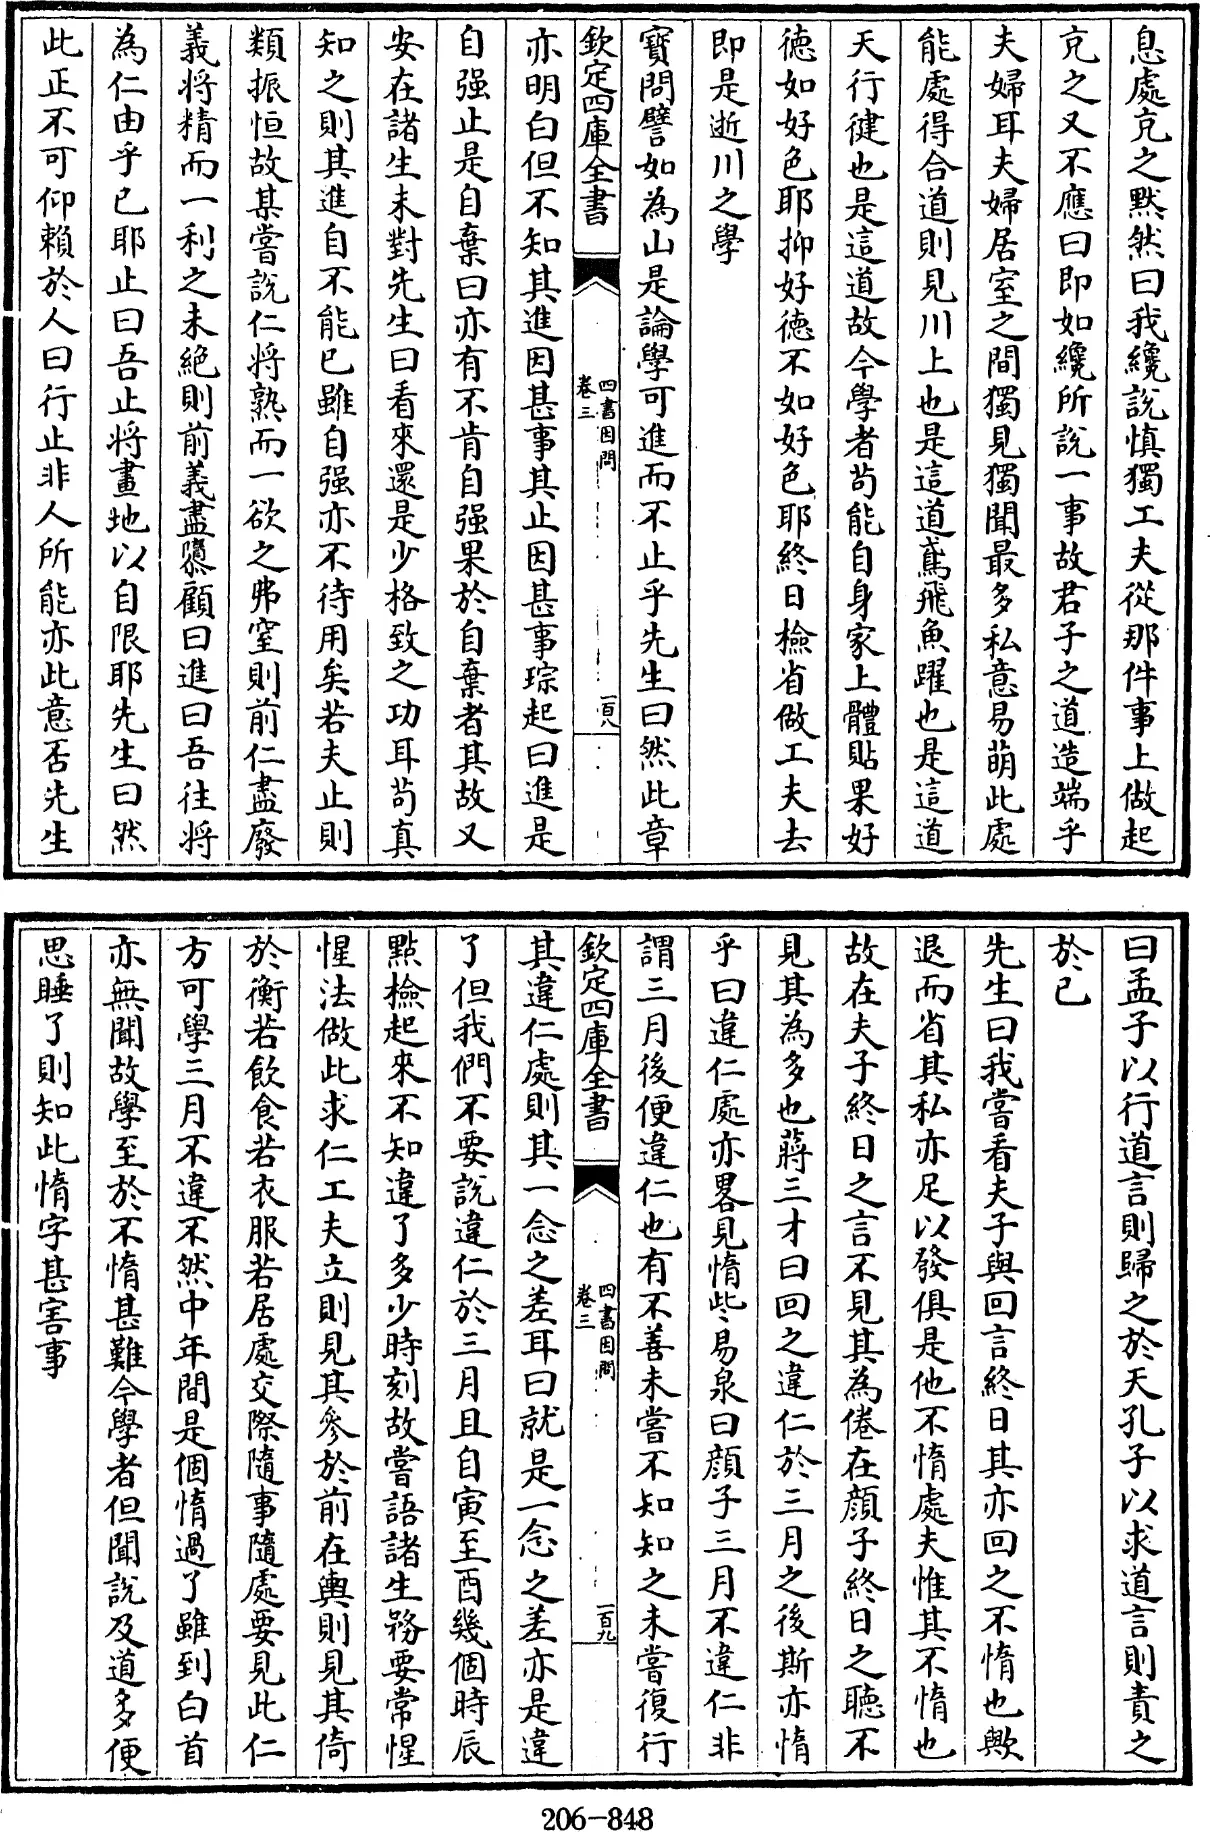 息處克之黙然曰我纔説慎獨工夫從那件事上做起
克之又不應曰即如纔所説一事故君子之道造端乎
夫婦耳夫婦居室之間獨見獨聞最多私意易萌此處
能處得合道則見川上也是這道鳶飛魚躍也是這道
天行健也是這道故今學者茍能自身家上體貼果好
徳如好色耶抑好徳不如好色耶終日檢省做工夫去
即是逝川之學
寳問譬如為山是論學可進而不止乎先生曰然此章
欽定四庫全書
四書因問
卷三
一百八
亦明白但不知其進因甚事其止因甚事琮起曰進是
自强止是自棄曰亦有不肯自强果於自棄者其故又
安在諸生未對先生曰看來還是少格致之功耳茍真
知之則其進自不能已雖自强亦不待用矣若夫止則
類振恒故某嘗説仁將熟而一欲之弗窒則前仁盡廢
義將精而一利之未絶則前義盡隳顧曰進曰吾往將
為仁由乎已耶止曰吾止將畫地以自限耶先生曰然
此正不可仰賴於人曰行止非人所能亦此意否先生
曰孟子以行道言則歸之於天孔子以求道言則責之
於已
先生曰我嘗看夫子與回言終日其亦回之不惰也歟
退而省其私亦足以發俱是他不惰處夫惟其不惰也
故在夫子終日之言不見其為倦在顔子終日之聽不
見其為多也蔣三才曰回之違仁於三月之後斯亦惰
乎曰違仁處亦畧見惰些易泉曰顔子三月不違仁非
謂三月後便違仁也有不善未嘗不知知之未嘗復行
欽定四庫全書
四書因問
卷三
一百九
其違仁處則其一念之差耳曰就是一念之差亦是違
了但我們不要説違仁於三月且自寅至酉幾個時辰
㸃檢起來不知違了多少時刻故嘗語諸生務要常惺
惺法做此求仁工夫立則見其參於前在輿則見其倚
於衡若飲食若衣服若居處交際隨事隨處要見此仁
方可學三月不違不然中年間是個惰過了雖到白首
亦無聞故學至於不惰甚難今學者但聞説及道多便
思睡了則知此惰字甚害事
206-848